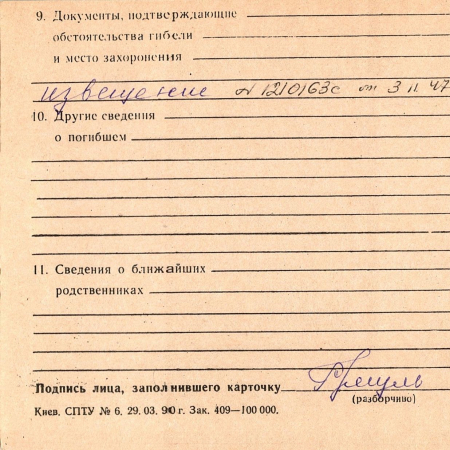 9. Документы, подтверждающие
обстоятельства гибели
и место захоронения
извещение № 1210163с от 3 11.47
10. Другие сведения
о погибшем
11. Сведения о ближайших
родственниках
Подпись лица, заполнившего карточку
(разборчиво)
Киев. СПТУ № 6. 29. 03. 90 г. Зак. 409—100 000.